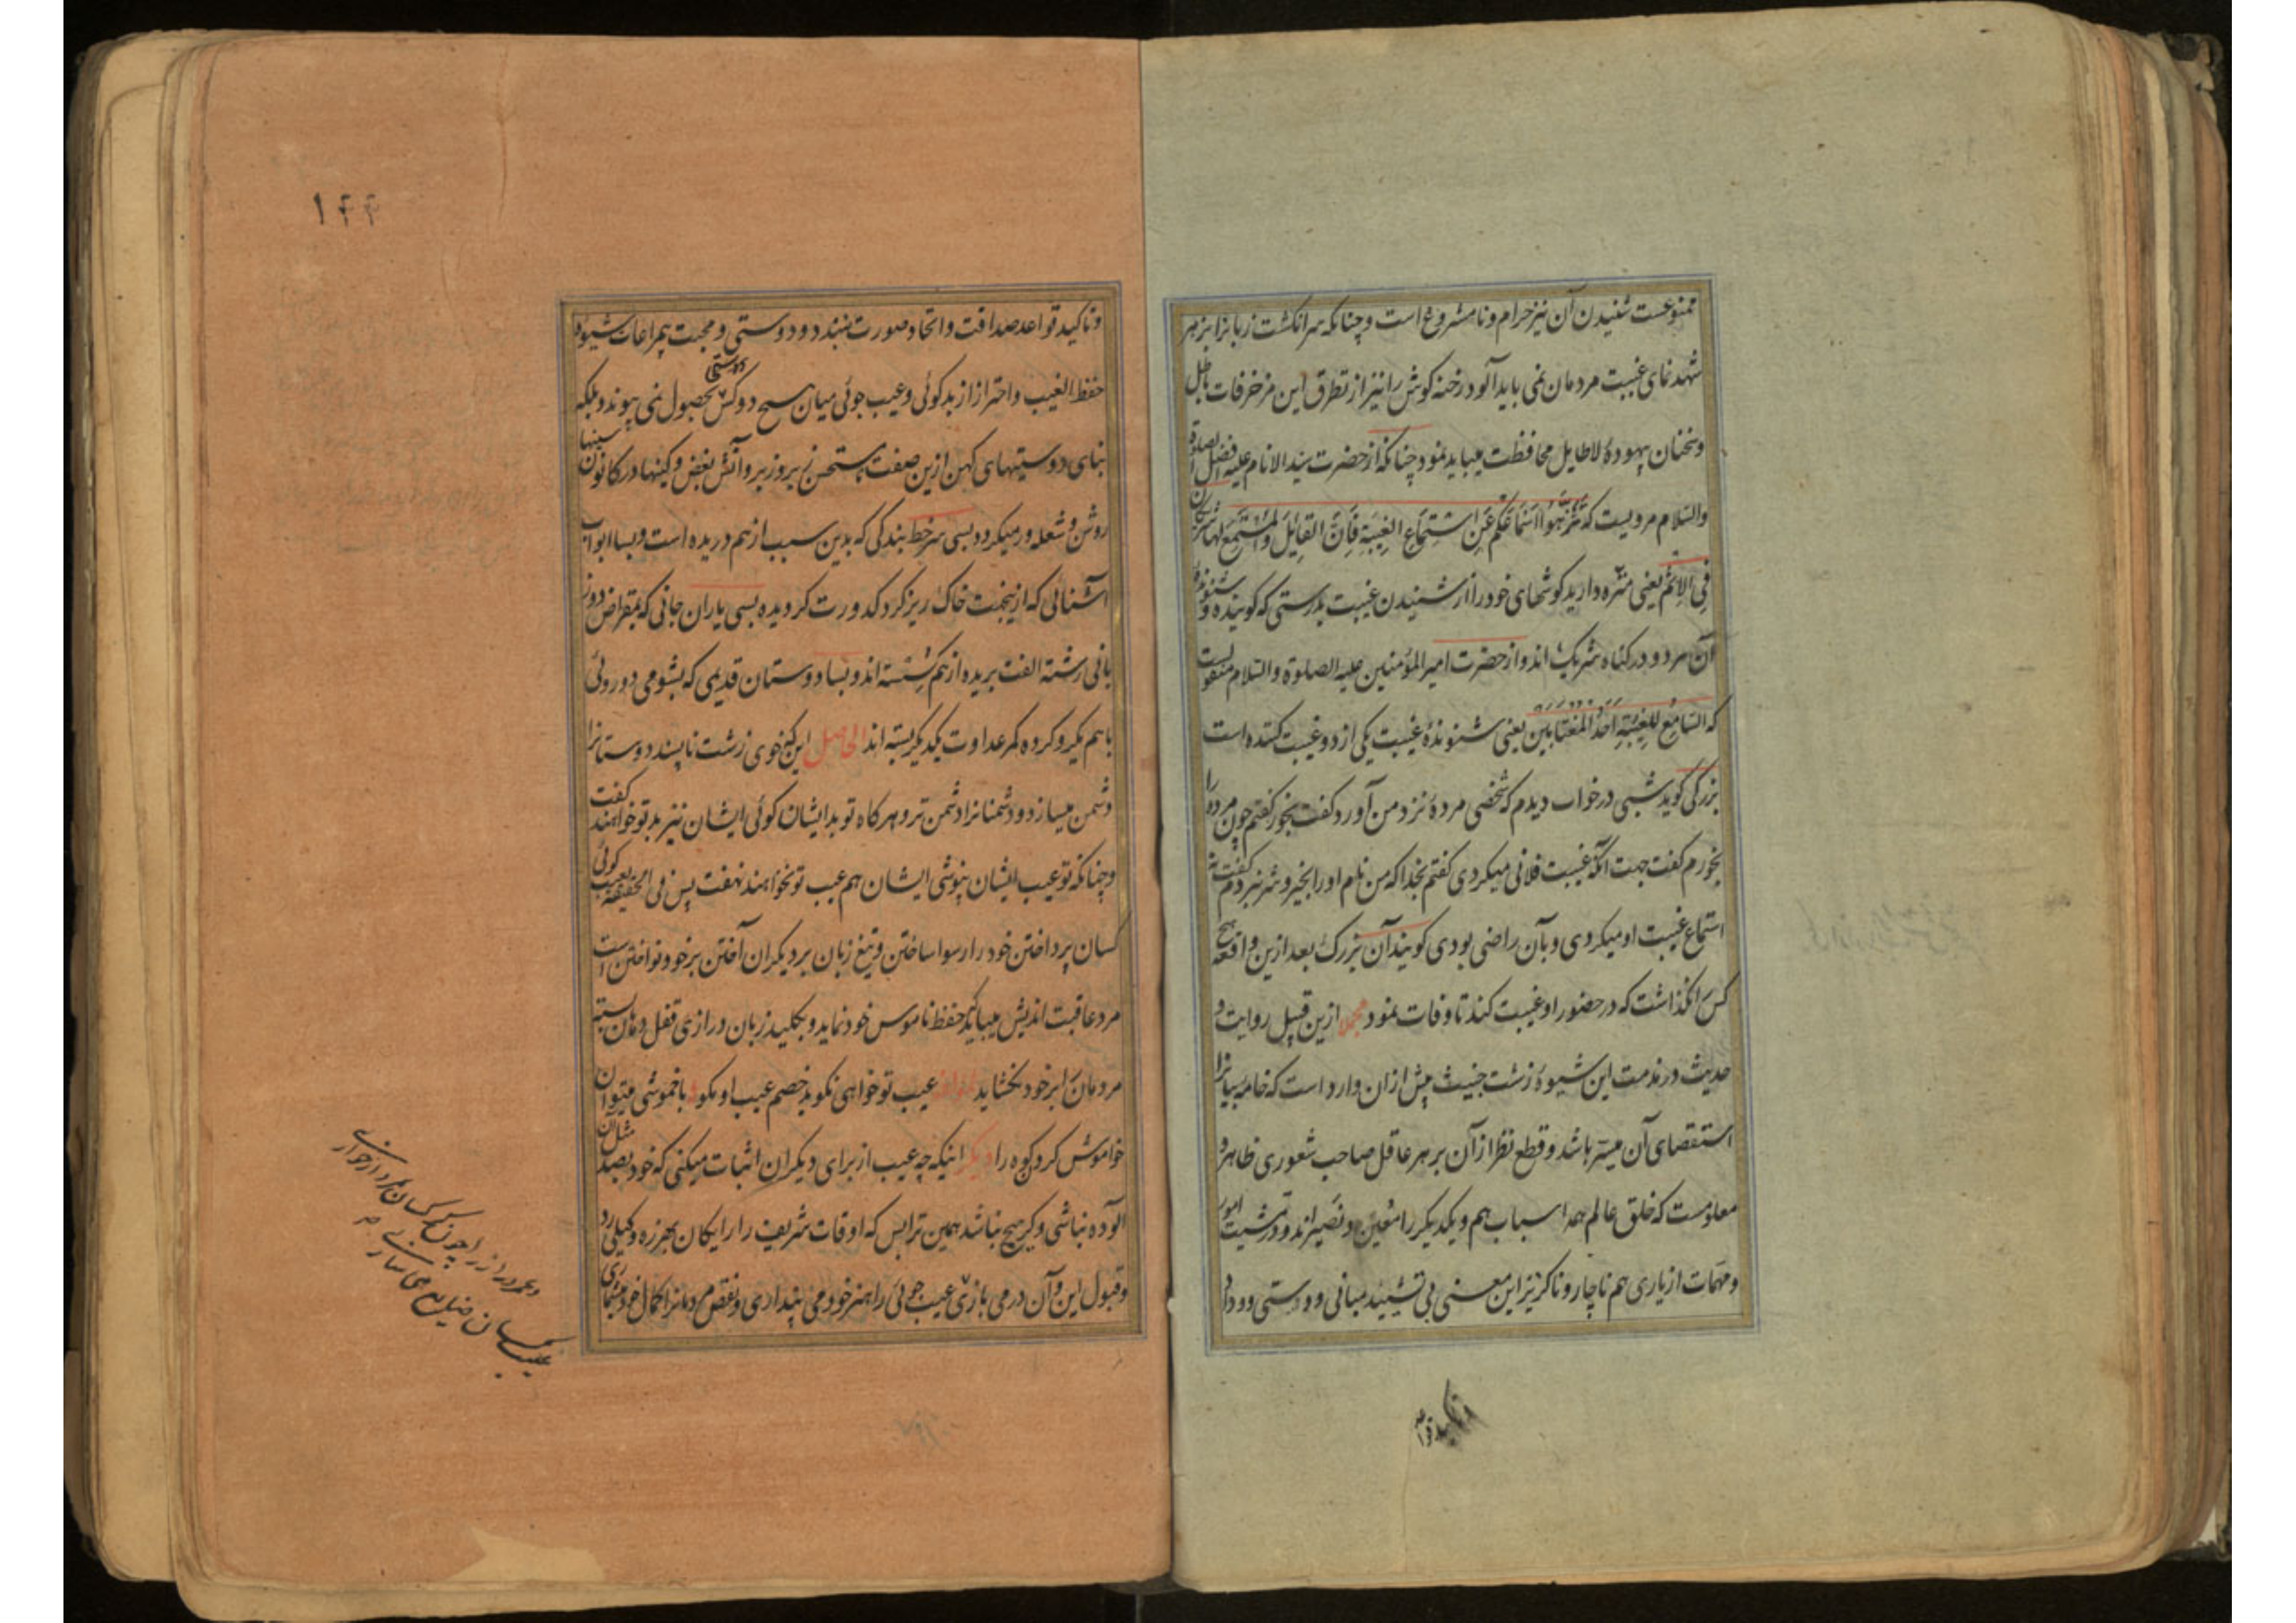 ممنوعست شنیدن آن نیز حرام و نامشروع است و چنانکه سر انکشت زبانرا بزهر
شهدنمای غیبت مردمان نمی باید آلود رخنه کوش را نیز از تطرق این مزخرفات باطل
و سخنان بیهودهٔ لاطایل محافظت میباید نمود چنانکه از حضرت سید الانام علیه افضل الصلوة
والسلام مرویست که نَزِّهُوا اَسْمَاعَکُم عَنِ اسْتِمَاعِ الغِیْبَةِ فَاِنَّ القَائِلَ وَالمُسْتَمِعَ لَهَا شَرِیکَانِ
فِی الاِثْمِ یعنی منزه دارید کوشهای خود را از شنیدن غیبت بدرستی که کوینده و شنوندهٔ
آن هر دو در کناه شریک اند و از حضرت امیرالمؤمنین علیه الصلوة والسلام منقولست
که السَّامِعُ لِلغِیْبَةِ اَحَدُ المُغْتَابَیْنِ یعنی شنوندهٔ غیبت یکی از دو غیبت کننده است
بزرکی کوید شبی در خواب دیدم که شخصی مردهٔ نزد من آورد کفت بخور کفتم چون مرده را
بخورم کفت جهت آنکه غیبت فلانی میکردی کفتم بخدا که من نام او را بخیر و شر نبردم کفت نه
استماع غیبت او میکردی و بآن راضی بودی کویند آن بزرک بعد ازین واقعه هیچ
کس را نکذاشت که در حضور او غیبت کند تا وفات نمود مجملا ازین قبیل روایت و
حدیث در مذمت این شیوهٔ زشت خبیث بیش از ان وارد است که خامه بیانرا
استقصای آن میسر باشد و قطع نظر از آن بر هر عاقل صاحب شعوری ظاهر و
معلومست که خلق عالم همه اسباب هم و یکدیکر را معین و نصیراند و در مشیت امور
و مهمات از یاری هم ناچار و ناکزیز این معنی بی تشیید مبانی دوستی و وداد
و تاکید قوا
۱۴۴
و تاکید قواعد صداقت و اتحاد صورت نبندد و دوستی و محبت بی مراعات شیوهٔ
حفظ الغیب و احتراز از بدکوئی و عیب جوئی میان هیچ دو کس بحصول نمی پیوندد بلکه
بنای دوستیهای کهن ازین صفت زیر و زبر و آتش بغض و کینها در کانون سینها
روشن و شعله ور میکردد بسی سر خط بندکی که بدین سبب از هم دریده است و بسا ابواب
آشنائی که ازینجهت خاک ریز کرد کدورت کردیده بسی یاران جانی که بمقراض دو ز
بانی رشتهٔ الفت بریده از هم کسسته اند و بسا دوستان قدیمی که بشومی دوروئی
با هم یکرو کرده کمر عداوت یکدیکر بسته اند الحاصل اینکه خوی زشت ناپسند دوستانرا
دشمن میسازد و دشمنانرا دشمن تر و هرکاه تو بد ایشان کوئی ایشان نیز بد تو خواهند کفت
و چنانکه تو عیب ایشان نپوشی ایشان هم عیب تو نخواهند نهفت پس فی الحقیقه بعیب کوئی
کسان پرداختن خود را رسوا ساختن و تیغ زبان بر دیکران آختن بر خود نواختن است
مرد عاقبت اندیش میباید که حفظ ناموس خود نماید و بکلید زبان درازی قفل دهان بسته
مردمان را بر خود نکشاید عیب تو خواهی نکوید خصم عیب او مکو با خموشی میتوان
خاموش کرد کوه را دیکر اینکه چه عیب از برای دیکران اثبات میکنی که خود بصد مثل آن
آلوده نباشی و کر هیچ نباشد همین ترا بس که اوقات شریف را رایکان بهرزه وکیلی رد
و قبول این و آن در می بازی عیب جوئی را هنر خود می پنداری و نقص مردمانرا کمال خود میشماری
و عمر دراز را چون کسان
عیب کسان